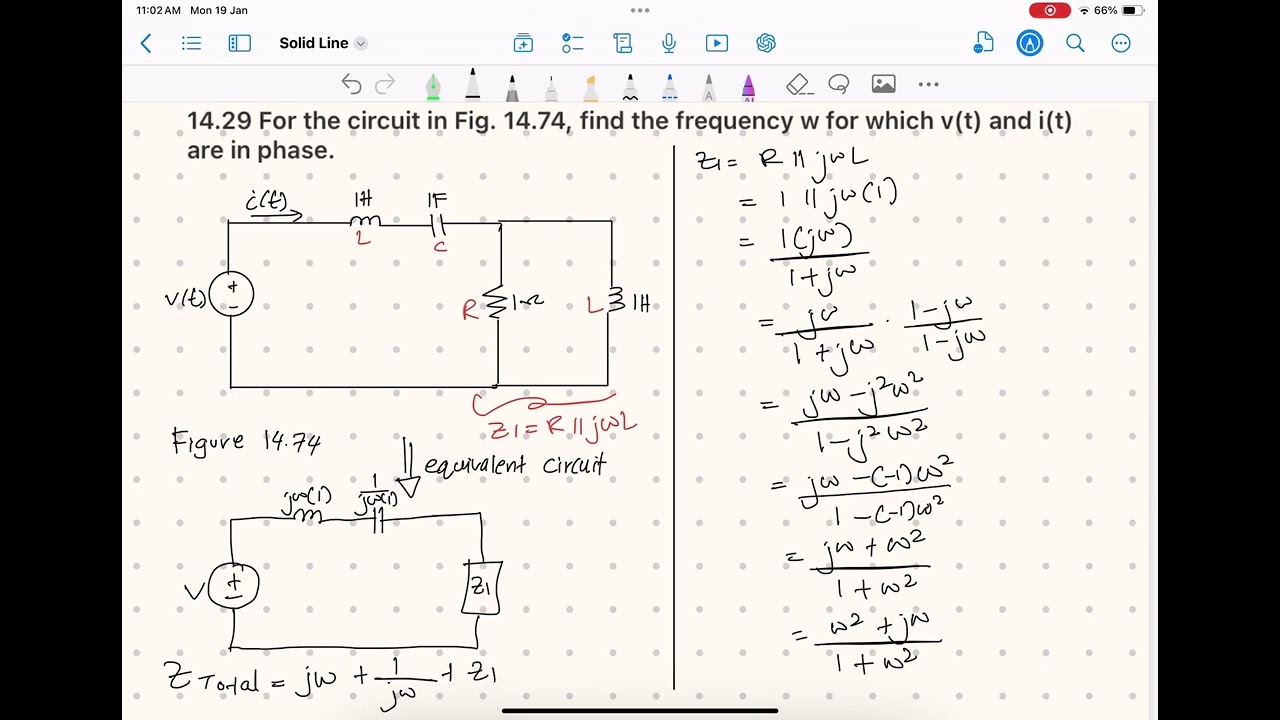 11:02 AM Mon 19 Jan
66%
Solid Line
A
AI
14.29 For the circuit in Fig. 14.74, find the frequency w for which v(t) and i(t)
are in phase.
i(t)
1H
1F
L
C
v(t)
+
-
R
1Ω
L
1H
Z1 = R || jωL
Figure 14.74
equivalent circuit
jω(1)
1/jω(1)
V
+
-
Z1
Z Total = jω + 1/jω + Z1
Z1 = R || jωL
= 1 || jω(1)
= 1(jω)/1+jω
= jω/1+jω · 1-jω/1-jω
= jω - j²ω²/1 - j²ω²
= jω - (-1)ω²/1 - (-1)ω²
= jω + ω²/1 + ω²
= ω² + jω/1 + ω²